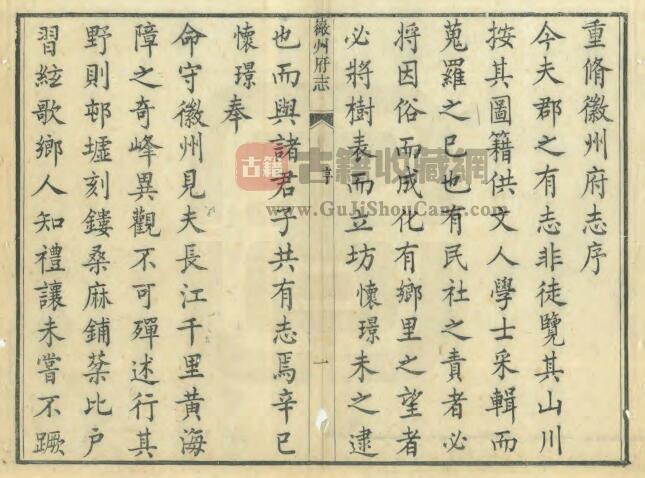 重脩徽州府志序
今夫郡之有志非徒覽其山川
按其圖籍供文人學士采輯而
蒐羅之已也有民社之責者必
將因俗而成化有鄉里之望者
必將樹表而立坊懷璟未之逮
徽州府志
序
一
也而與諸君子共有志焉辛巳
懷璟奉
命守徽州見夫長江千里黄海
障之奇峰異觀不可殫述行其
野則邨墟刻鏤桑麻鋪棻比户
習絃歌鄉人知禮讓未嘗不蹶
古籍
古籍收藏網
www.GuJiShouCang.com